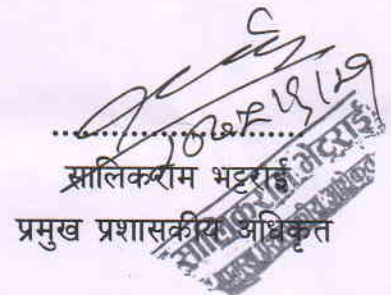 ....................................
सालिकराम भट्टराई
प्रमुख प्रशासकीय अधिकृत
सालिकराम भट्टराई
प्रमुख प्रशासकीय अधिकृत